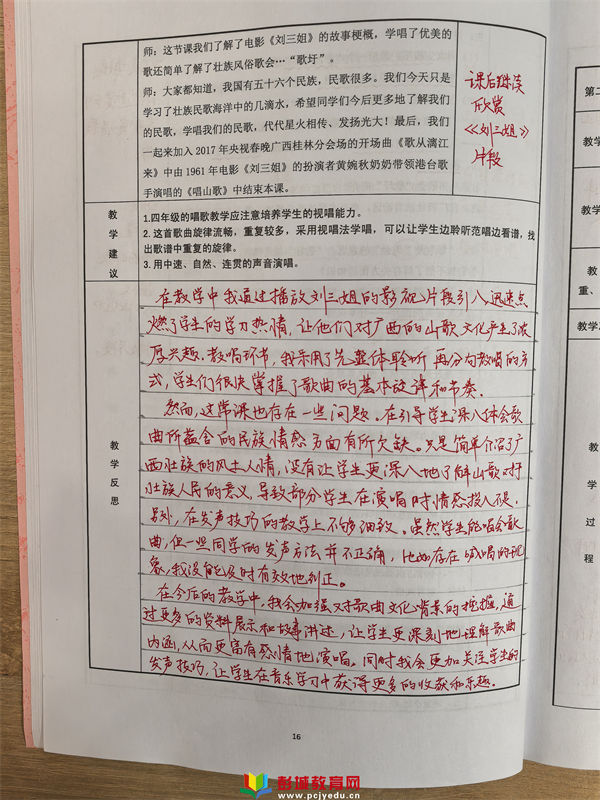 师：这节课我们了解了电影《刘三姐》的故事梗概，学唱了优美的
歌还简单了解了壮族风俗歌会…“歌圩”。
师：大家都知道，我国有五十六个民族，民歌很多。我们今天只是
学习了壮族民歌海洋中的几滴水，希望同学们今后更多地了解我们
的民歌，学唱我们的民歌，代代星火相传、发扬光大！最后，我们
一起来加入 2017 年央视春晚广西桂林分会场的开场曲《歌从漓江
来》中由 1961 年电影《刘三姐》的扮演者黄婉秋奶奶带领港台歌
手演唱的《唱山歌》中结束本课。
课后继续
欣赏
《刘三姐》
片段
教学建议
1.四年级的唱歌教学应注意培养学生的视唱能力。
2.这首歌曲旋律流畅，重复较多，采用视唱法学唱，可以让学生边聆听范唱边看谱，找
出歌谱中重复的旋律。
3.用中速、自然、连贯的声音演唱。
教学反思
在教学中我通过播放刘三姐的影视片段引入，迅速点
燃了学生的学习热情，让他们对广西的山歌文化产生了浓
厚兴趣。教唱环节，我采用了先整体聆听再分句教唱的方
式，学生们很快掌握了歌曲的基本旋律和节奏。
然而，这节课也存在一些问题。在引导学生深入体会歌
曲所蕴含的民族情感方面有所欠缺。只是简单介绍了广
西壮族的风土人情，没有让学生更深入地了解山歌对于
壮族人民的意义，导致部分学生在演唱时情感投入不足。
另外，在发声技巧的教学上不够细致。虽然学生能唱会歌
曲，但一些同学的发声方法并不正确，比如存在喊唱的现
象，我没能及时有效地纠正。
在今后的教学中，我会加强对歌曲文化背景的挖掘，通
过更多的资料展示和故事讲述，让学生更深刻地理解歌曲
内涵，从而更富有感情地演唱。同时我会更加关注学生的
发声技巧，让学生在音乐学习中获得更多的收获和乐趣。
16
第二
教学
教学
重、
教学
学
过
程
彭城教育网
www.pcjyedu.cn